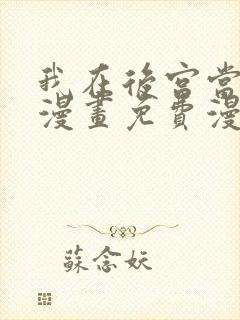 我在後宮當
漫畫免費漫
蘇念妖